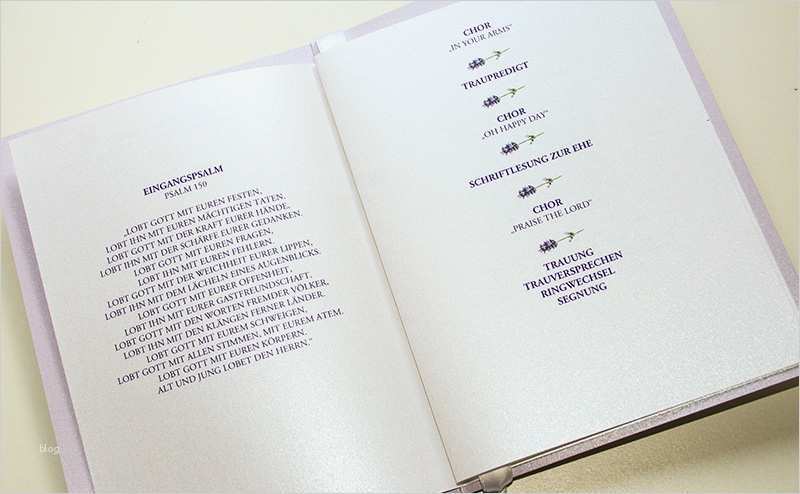 EINGANGSPSALM
PSALM 150
„LOBT GOTT MIT EUREN FESTEN,
LOBT IHN MIT EUREN MÄCHTIGEN TATEN.
LOBT GOTT MIT DER KRAFT EURER HÄNDE,
LOBT IHN MIT DER SCHÄRFE EURER GEDANKEN.
LOBT GOTT MIT EUREN FRAGEN,
LOBT IHN MIT EUREN FEHLERN.
LOBT GOTT MIT DER WEICHHEIT EURER LIPPEN,
LOBT IHN MIT DEM LÄCHELN EINES AUGENBLICKS.
LOBT GOTT MIT EURER OFFENHEIT,
LOBT IHN MIT EURER GASTFREUNDSCHAFT.
LOBT GOTT MIT DEN WORTEN FREMDER VÖLKER,
LOBT IHN MIT DEN KLÄNGEN FERNER LÄNDER.
LOBT GOTT MIT EUREM SCHWEIGEN,
LOBT GOTT MIT ALLEN STIMMEN, MIT EUREM ATEM.
LOBT GOTT MIT EUREN KÖRPERN.
ALT UND JUNG LOBET DEN HERRN.“
CHOR
„IN YOUR ARMS“
TRAUPREDIGT
CHOR
„OH HAPPY DAY“
SCHRIFTLESUNG ZUR EHE
CHOR
„PRAISE THE LORD“
TRAUUNG
TRAUVERSPRECHEN
RINGWECHSEL
SEGNUNG
blog